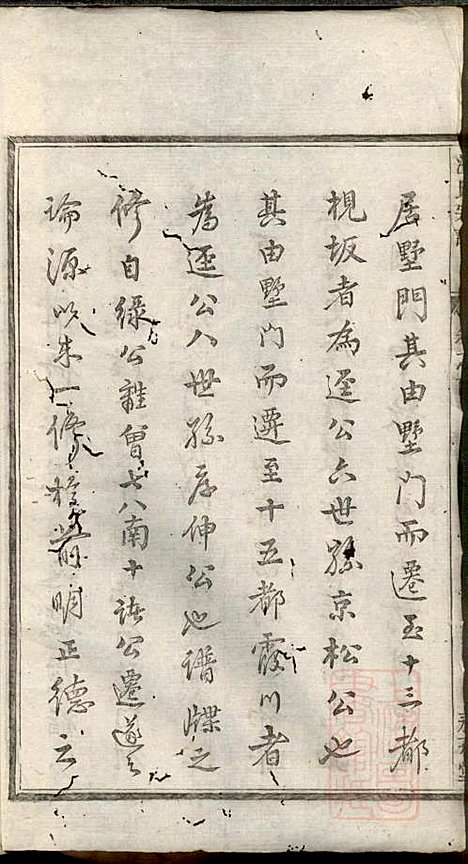 居墅門其由墅門而遷至十三都
梘坂者為逕公六世孫京松公也
其由墅門而遷至十五都霞川者
為逕公八世孫彦伸公也譜牒之
修自緑公離會七八南十公遷遂
論源以朱一修於前明正德云